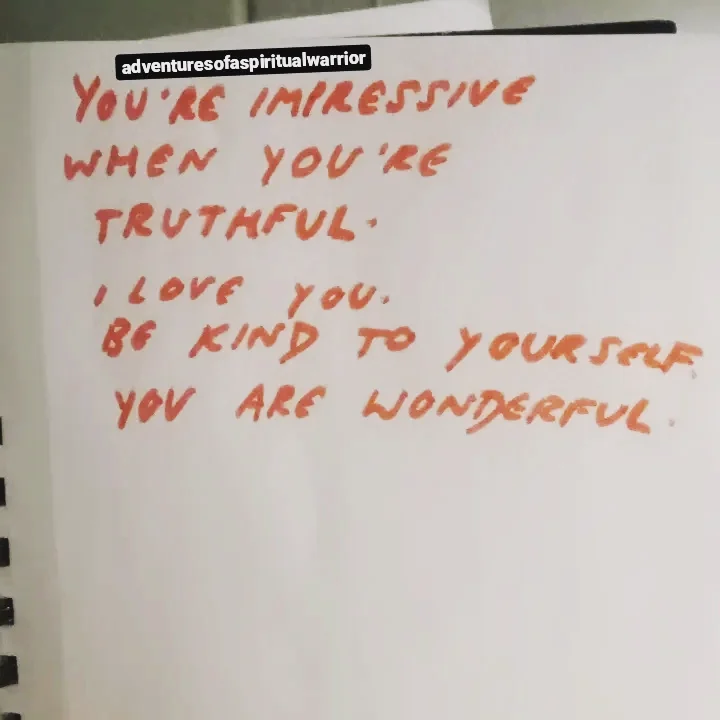 adventuresofaspiritualwarrior
YOU'RE IMPRESSIVE
WHEN YOU'RE
TRUTHFUL.
I LOVE YOU.
BE KIND TO YOURSELF.
YOU ARE WONDERFUL.